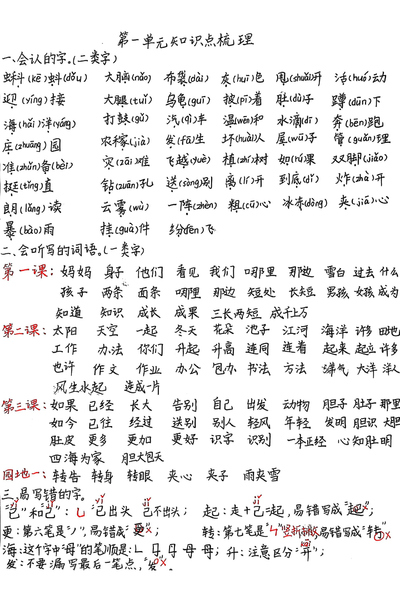 第一单元知识点梳理
一、会认的字。(二类字)
蝌蚪(kē)蚪(dǒu) 大脑(nǎo) 布袋(dài) 灰(huī)色 甩(shuǎi)开 活(huó)动
迎(yíng)接 大腿(tuǐ) 乌龟(guī) 披(pī)着 肚(dù)子 蹲(dūn)下
海(hǎi)洋(yáng) 打鼓(gǔ) 汽(qì)车 温(wēn)和 水滴(dī) 奔(bēn)跑
庄(zhuāng)园 农稼(jià) 发(fā)生 坏(huài)人 屋(wū)子 管(guǎn)理
准(zhǔn)备(bèi) 灾(zāi)难 飞越(yuè) 植(zhí)树 如(rú)果 双脚(jiǎo)
挺(tǐng)直 钻(zuān)孔 送(sòng)别 离(lí)开 到底(dǐ) 炸(zhà)开
朗(lǎng)读 云雾(wù) 一阵(zhèn) 粗(cū)心 冰冻(dòng) 夹(jiā)心
暴(bào)雨 挂(guà)件 纷(fēn)飞
二、会听写的词语。(一类字)
第一课：妈妈 身子 他们 看见 我们 哪里 那边 雪白 过去 什么
孩子 两条 面条 哪里 那边 短处 长短 男孩 女孩 成为
知道 知识 成长 成果 三长两短 成千上万
第二课：太阳 天空 一起 冬天 花朵 池子 江河 海洋 许多 田地
工作 办法 你们 升起 升高 连同 连着 起来 起立 许多
也许 作文 作业 办公 包办 书法 方法 淘气 大洋 洋人
风生水起 连成一片
第三课：如果 已经 长大 告别 自己 出发 动物 胆子 肚子 那里
如今 已往 经过 送别 别人 轻风 年轻 发明 胆识 大胆
肚皮 更多 更加 更好 识字 识别 一本正经 心知肚明
四海为家 胆大包天
园地一：转告 转身 转眼 夹心 夹子 雨夹雪
三、易写错的字。
"已"和"己"：已出头 己不出头； 起：走+己=起，易错成"起"×
更：第六笔是"丿"，易错成"更"×； 转：第七笔是"竖折折"，易错写成"转"×
海：这个字中"母"的笔顺是： 升：注意区分"开"；
发：不要漏写最后一笔点，"发"×。